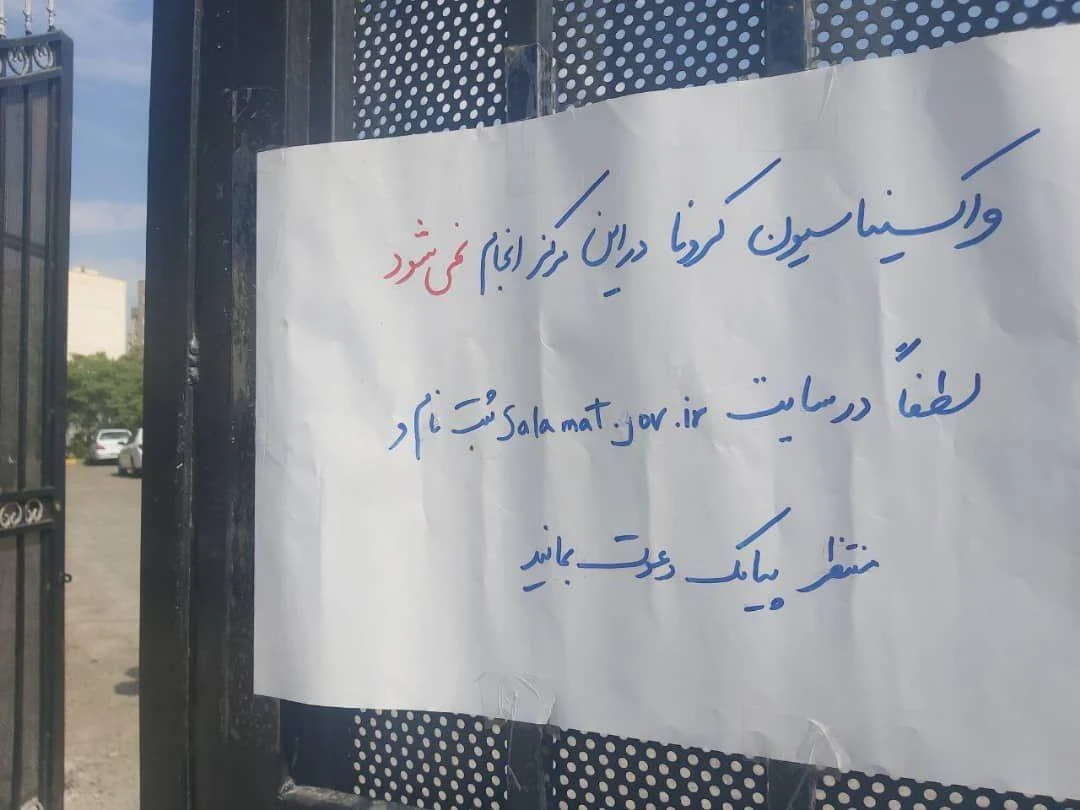 واکسیناسیون کرونا در این مرکز انجام نمی شود
لطفاً در سایت salamat.gov.ir ثبت نام و
منتظر پیامک دعوت بمانید